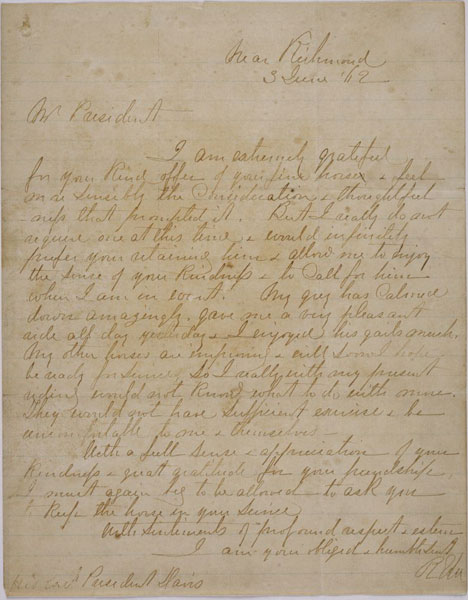 Near Richmond
3 June '62
Mr President
I am extremely grateful
for your kind offer of your fine horse & feel
more sensibly the consideration & thoughtful
ness that prompted it. But I really do not
require one at this time & would infinitely
prefer your retaining him & allow me to enjoy
the sense of your kindness & to call for him
when I am in want. My grey has calmed
down amazingly, gave me a very pleasant
ride all day yesterday & I enjoyed his gaits much.
My other horses are improving & will soon I hope
be ready for service, so I really with my present
riding would not know what to do with more.
They would not have sufficient exercise & be
uncomfortable to me & themselves -
With a full sense & appreciation of your
kindness & great gratitude for your friendship
I must again beg to be allowed to ask you
to keep the horse in your service
With sentiments of profound respect & esteem
I am your obliged & humble
R E Lee
President Davis